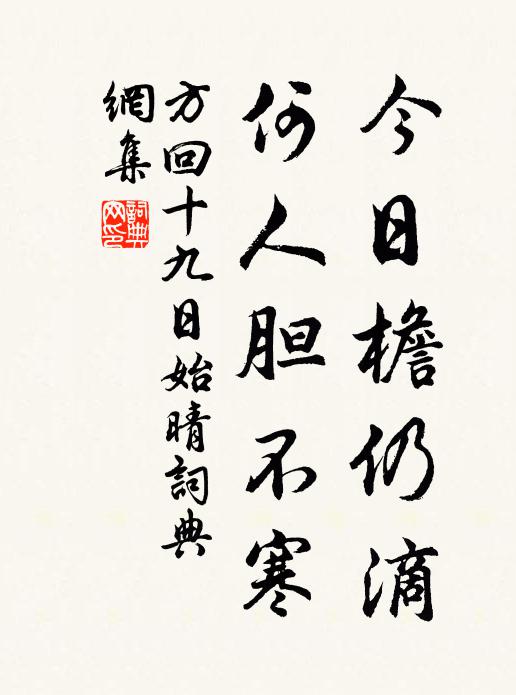 今日檐仍滴
何人胆不寒
方回十九日始晴詞典
網集
詞典
网印